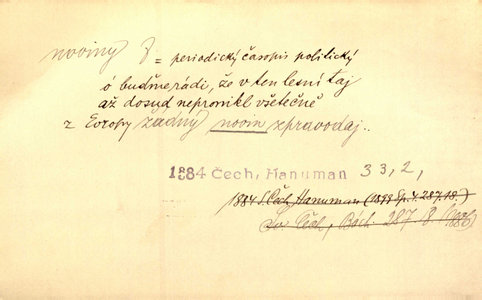 noviny f. = periodický časopis politický
ó buďme rádi, že v ten lesní taj
až dosud nepronikl všetečně
z Evropy žádný novin zpravodaj..
1884 Čech, Hanuman 33,2,
1884 Čech Hanuman (1899 Sp. 4. 287, 18.)
Sv. Čech, Bách. 287. 8